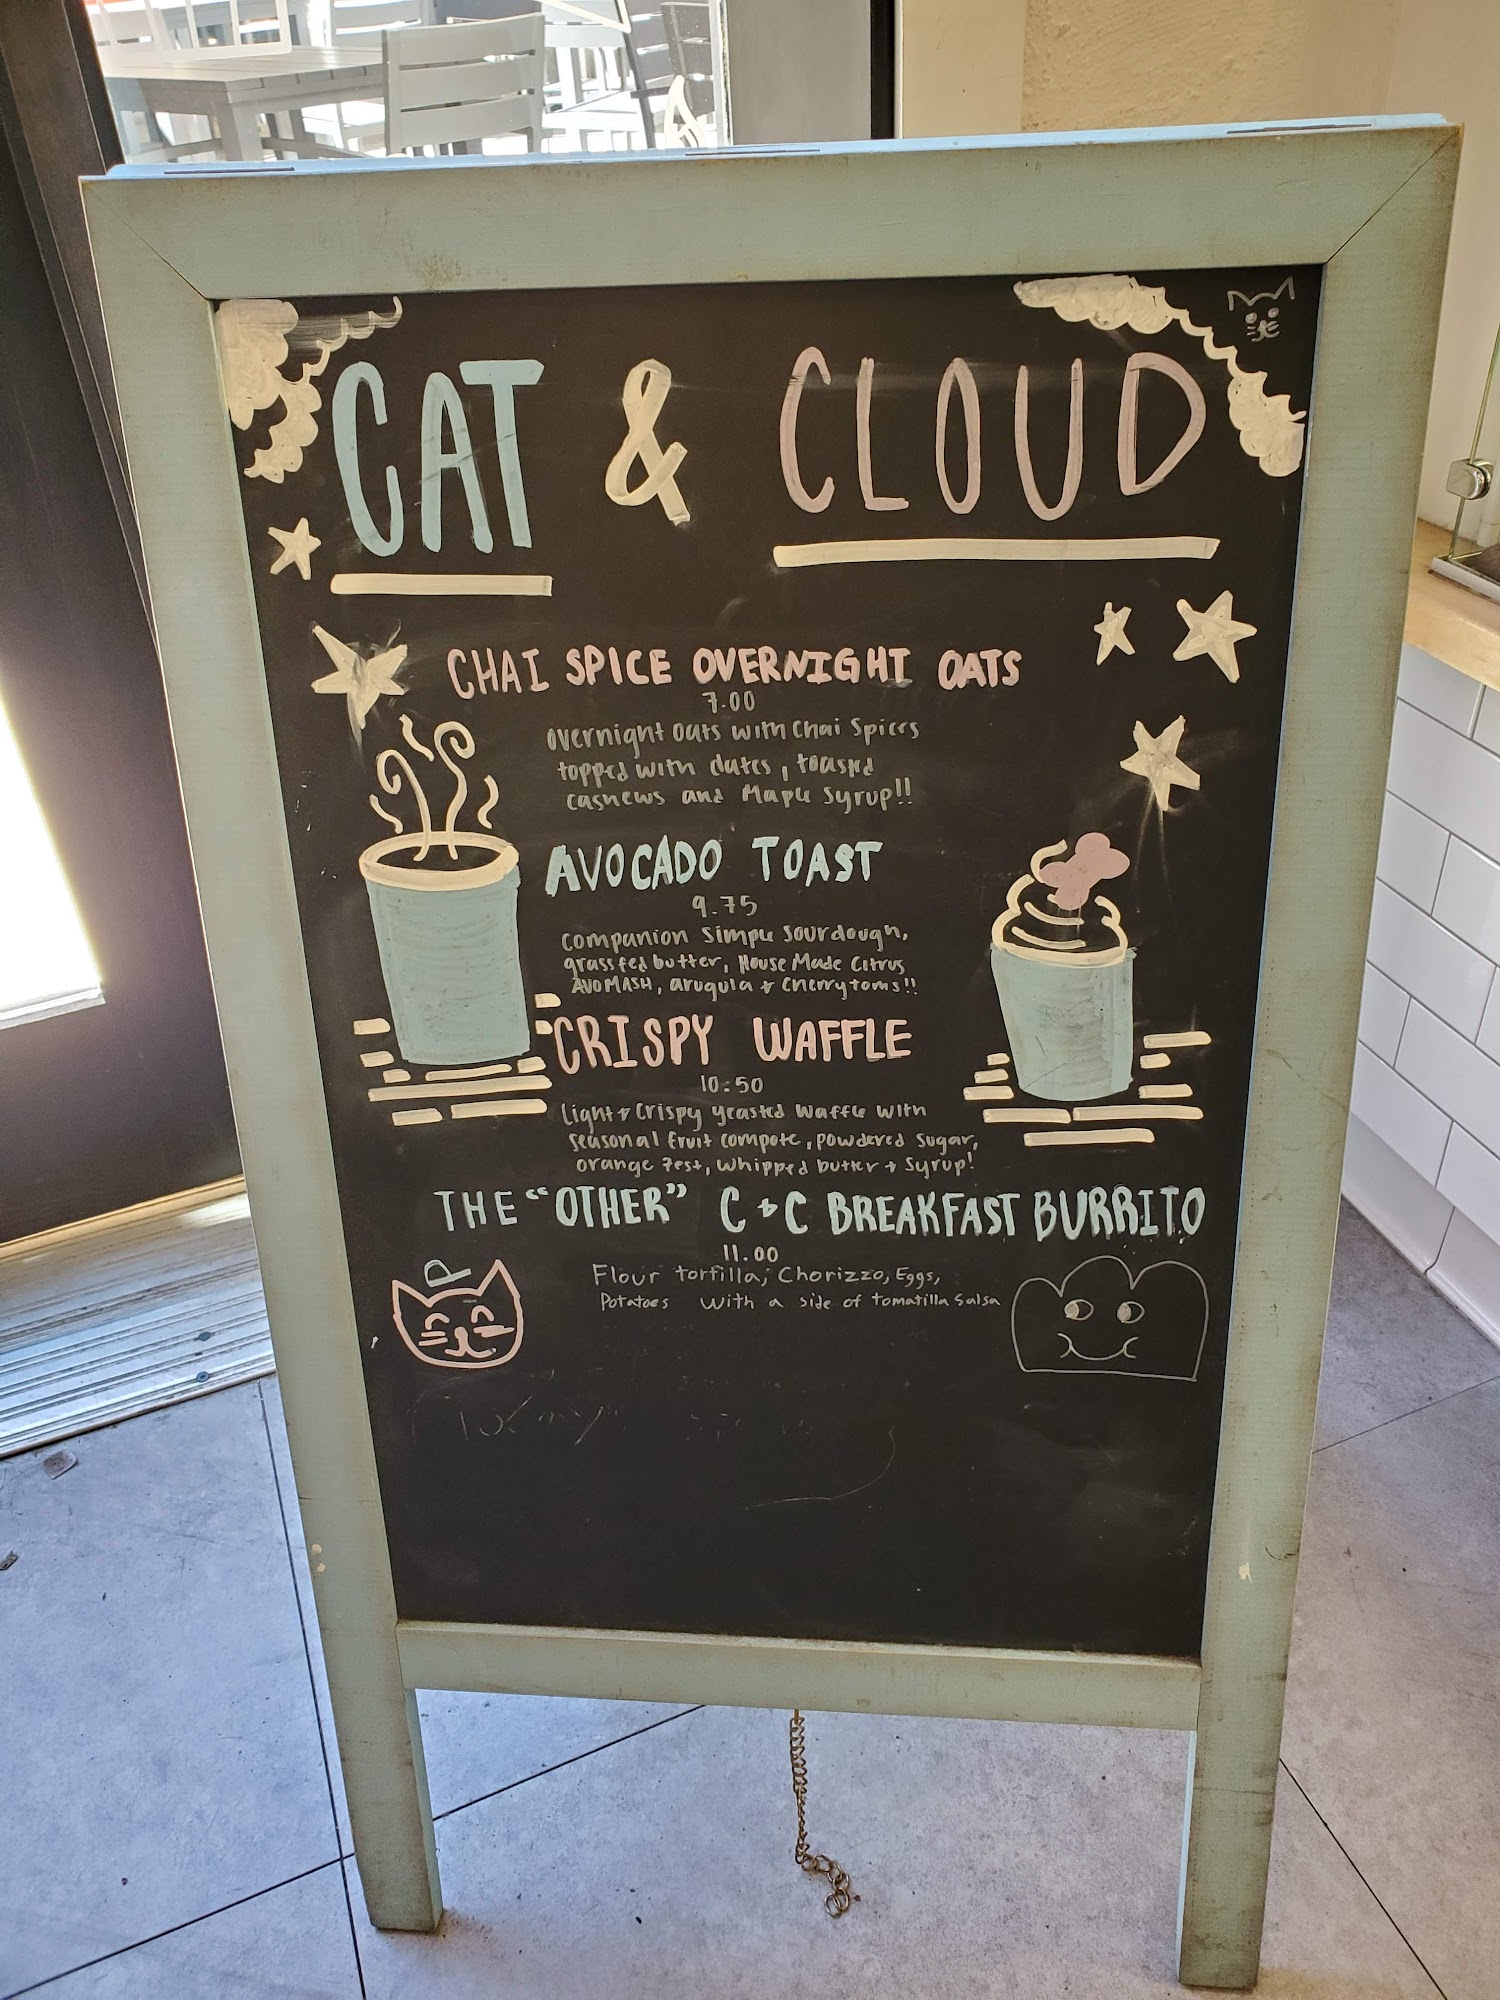 CAT & CLOUD
CHAI SPICE OVERNIGHT OATS
7.00
overnight oats with Chai Spices
topped with dates, toasted
cashews and Maple Syrup!!
AVOCADO TOAST
9.75
companion simple sourdough,
grassfed butter, House Made Citrus
AVOMASH, arugula + cherry toms!!
CRISPY WAFFLE
10.50
Light + Crispy yeasted waffle with
seasonal fruit compote, powdered sugar,
orange zest, whipped butter + syrup!
THE "OTHER" C + C BREAKFAST BURRITO
11.00
Flour tortilla, Chorizzo, Eggs,
Potatoes with a side of tomatilla salsa